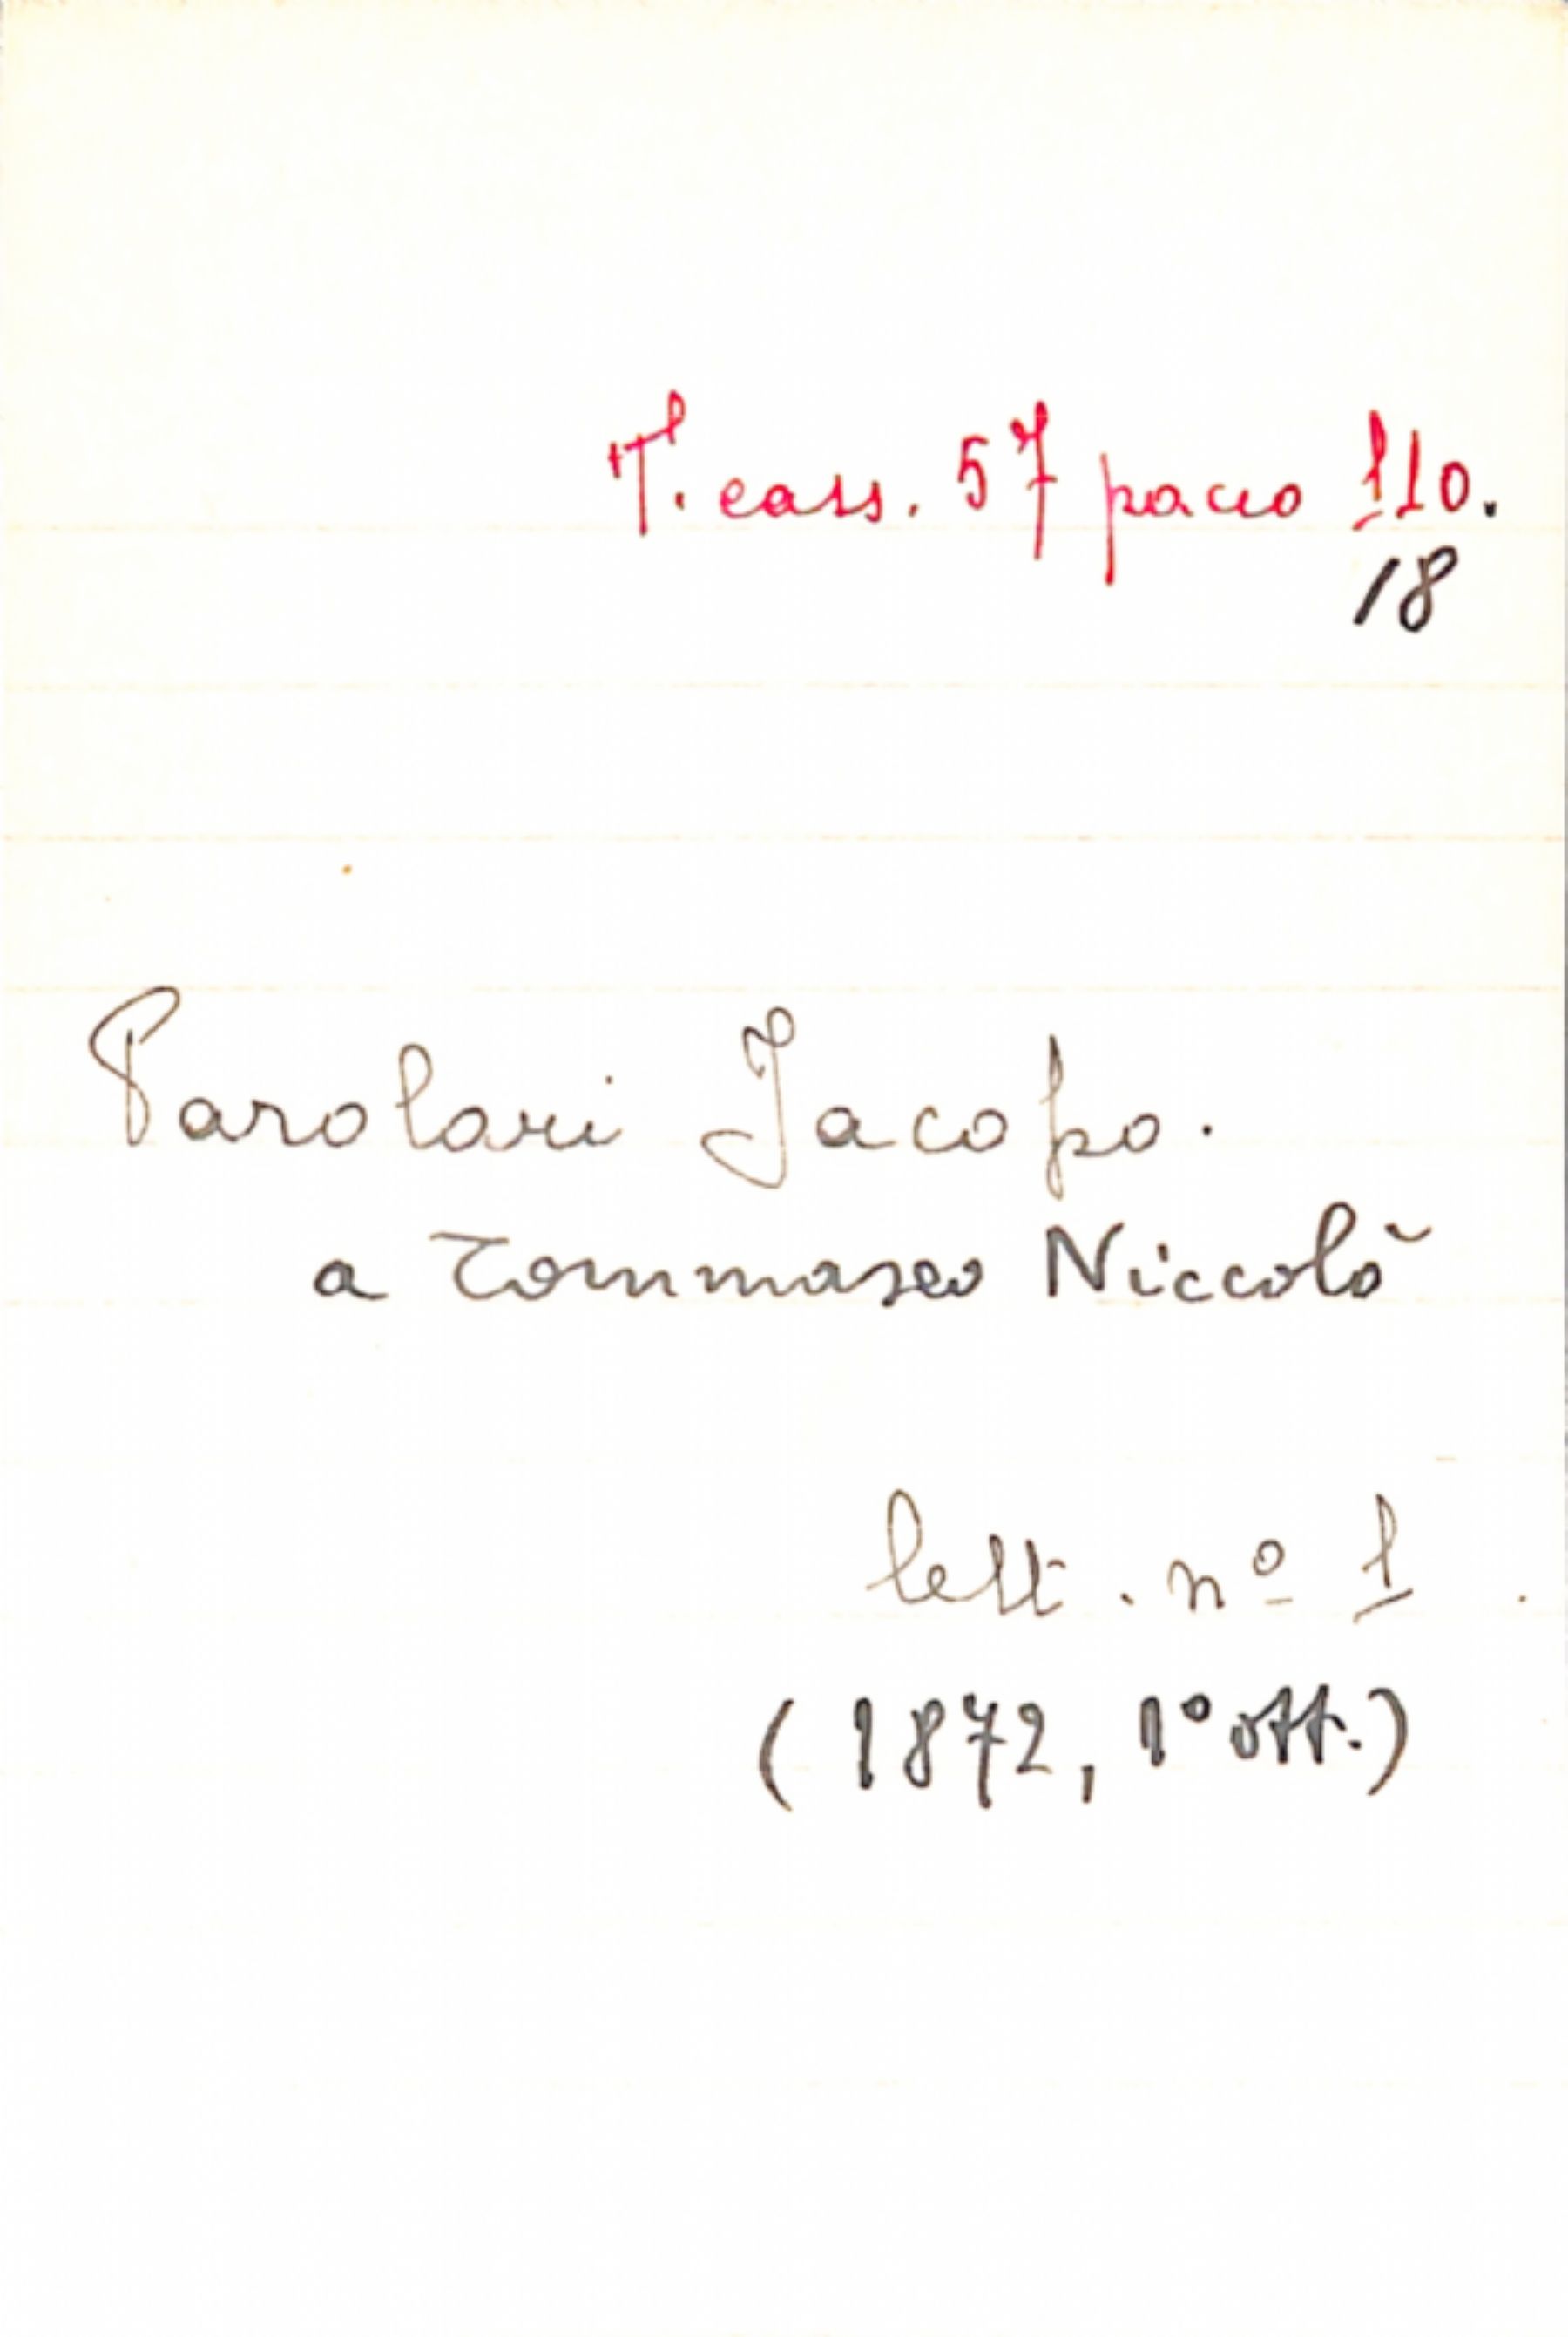 T. cass. 57 pacco 110.
18
Parolari Jacopo.
a Tommaseo Niccolò
lett. nº 1
(1872, 1° ott.)